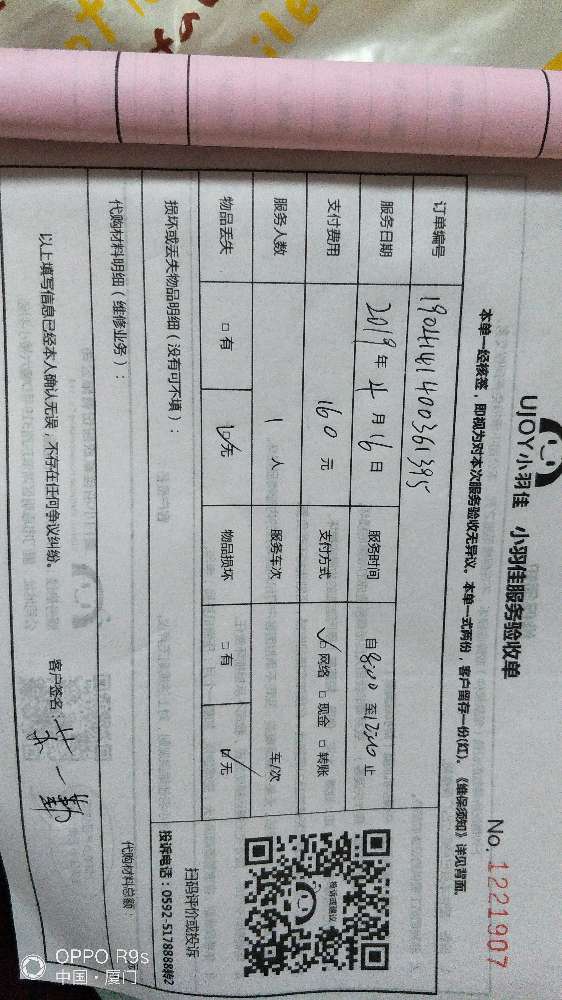 UJOY小羽佳 小羽佳服务验收单
No. 1221907
本单一经核签，即视为对本次服务验收无异议。本单一式两份，客户留存一份(红)。《维保须知》详见背面。
订单编号 1904141400361395
服务日期 2019年4月16日 服务时间 自8:00至12:00止
支付费用 160元 支付方式 ☑网络 □现金 □转账
服务人数 1人 服务车次 车/次
物品丢失 □有 ☑无 物品损坏 □有 ☑无
扫码评价或投诉
投诉电话：0592-5178888转2
损坏或丢失物品明细（没有可不填）：
代购材料明细（维修业务）：
代购材料总额：
以上填写信息已经本人确认无误，不存在任何争议纠纷。
客户签名：
OPPO R9s
中国·厦门